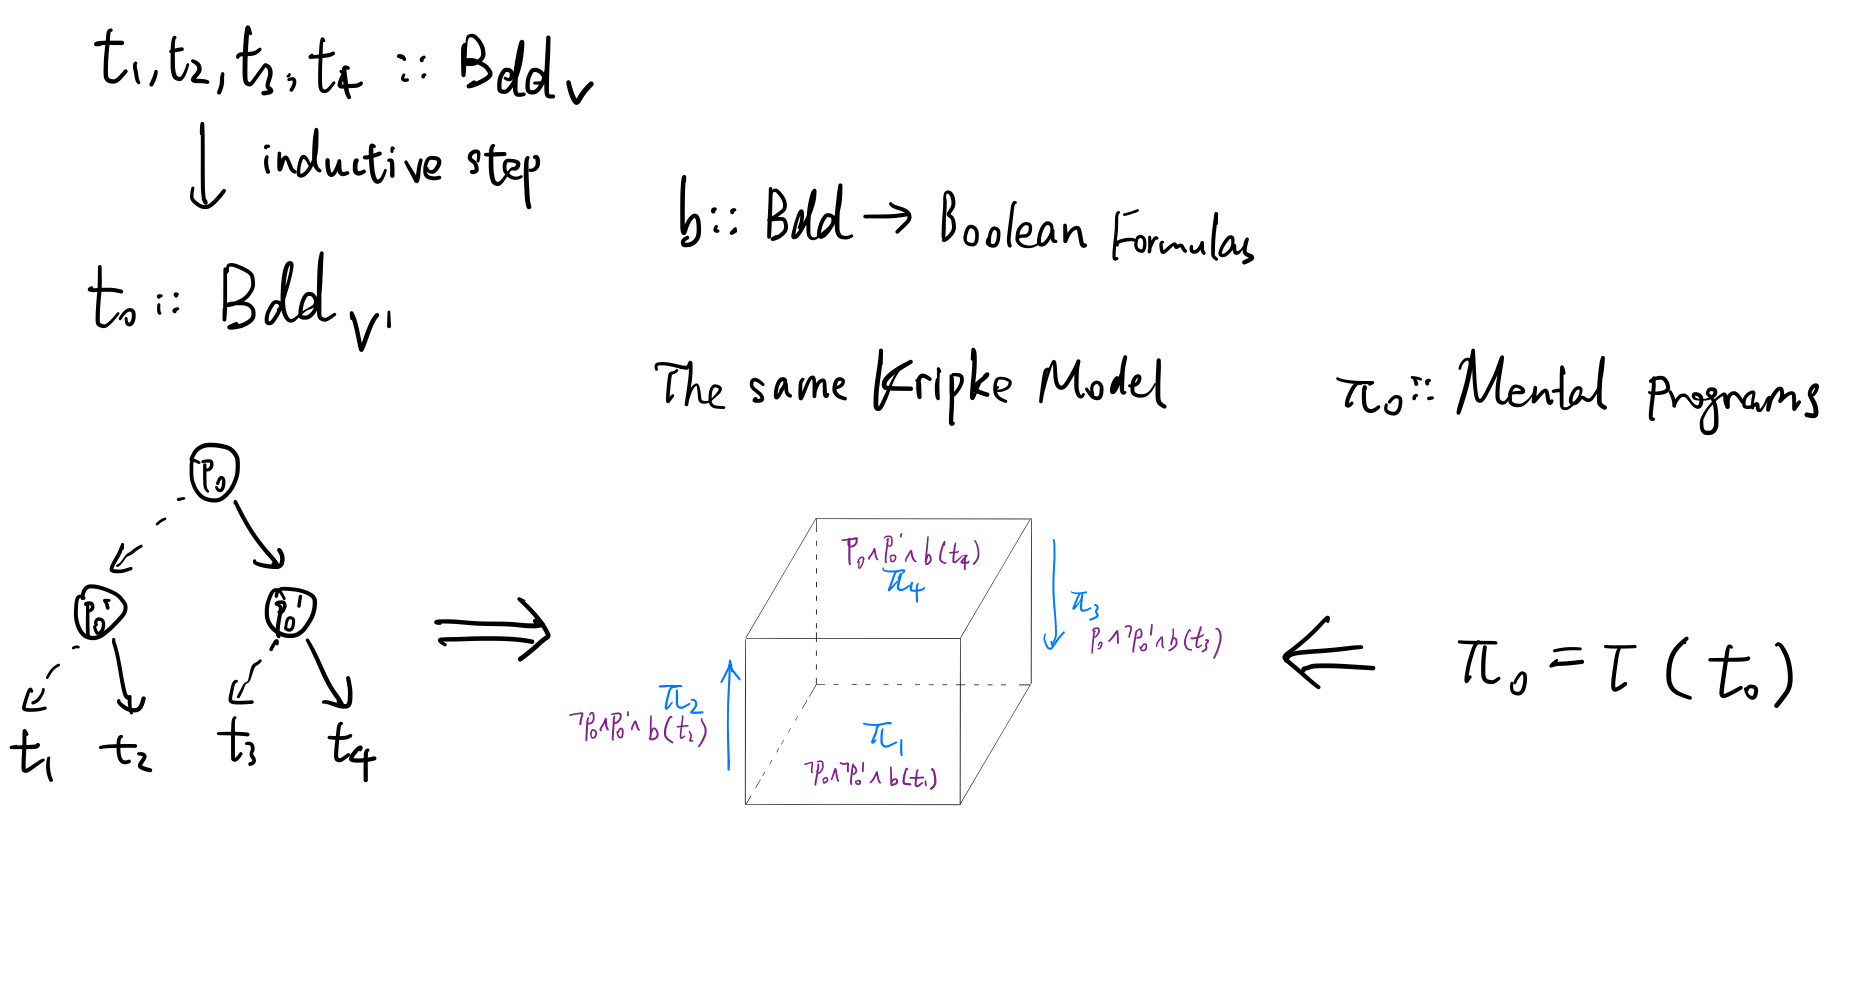 t₁, t₂, t₃, t₄ :: Bdd_V
inductive step
t₀ :: Bdd_V'
b :: Bdd → Boolean Formulas
The same Kripke Model
π₀ :: Mental Programs
p₀
p₀' p₀'
t₁ t₂ t₃ t₄
⇒
p₀∧p₀'∧b(t₄)
π₄
π₃
p₀∧¬p₀'∧b(t₃)
π₂
¬p₀∧p₀'∧b(t₂)
π₁
¬p₀∧¬p₀'∧b(t₁)
⇐
π₀ = τ(t₀)